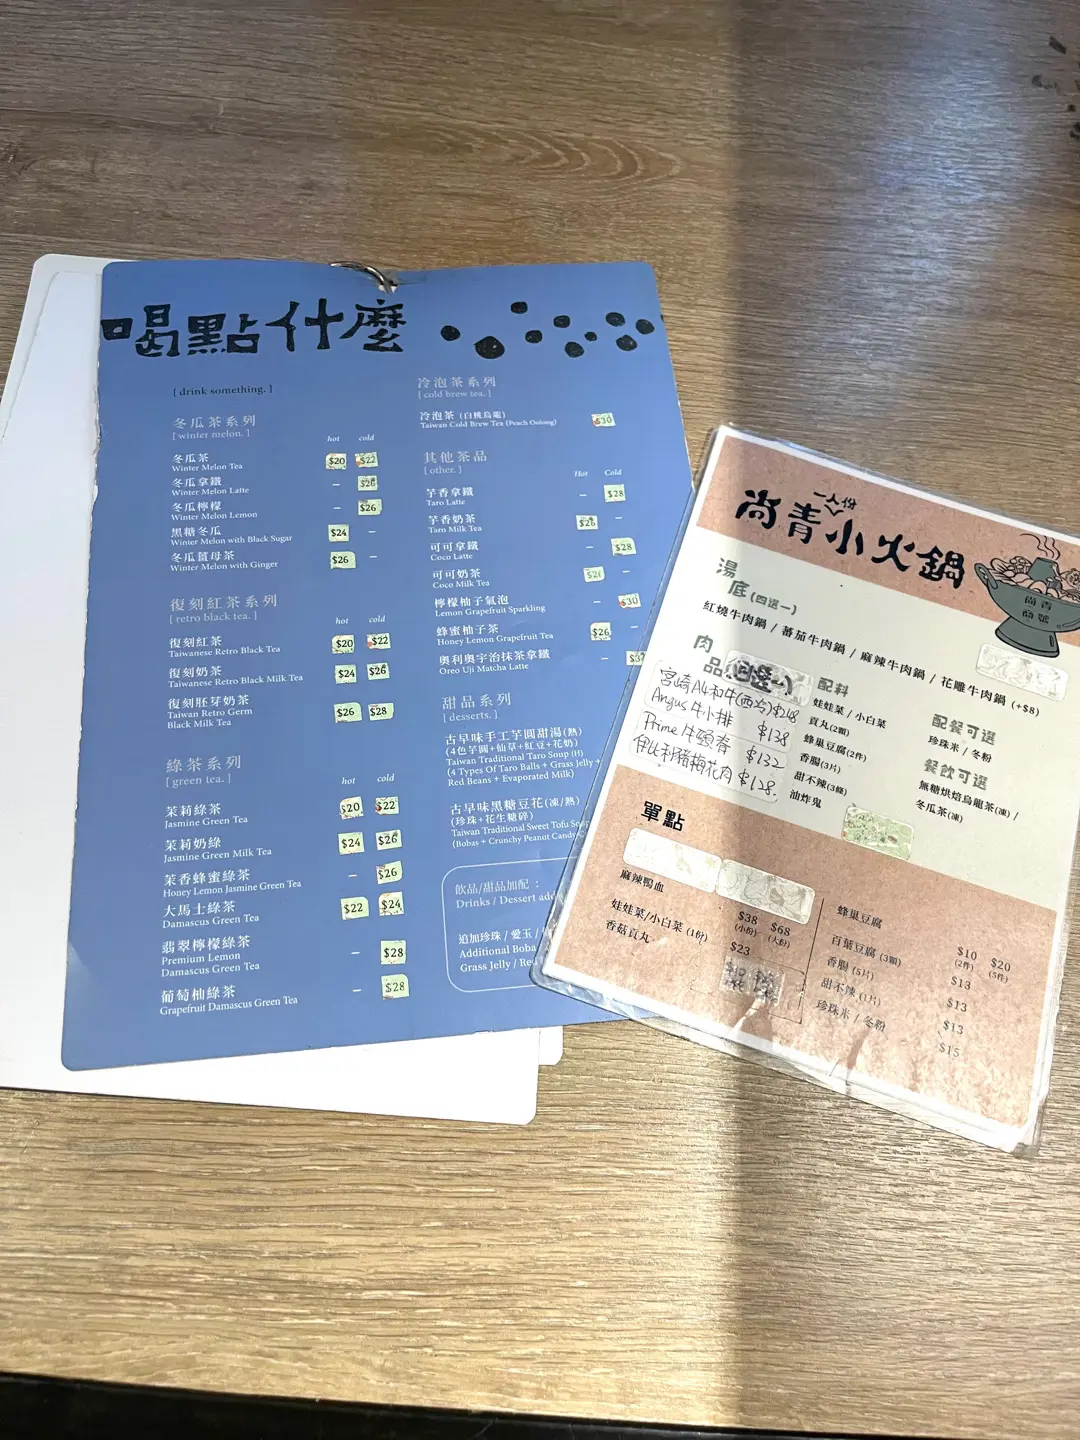 喝點什麼
[ drink something. ]
冬瓜茶系列
[ winter melon. ]
hot cold
冬瓜茶 $20 $22
Winter Melon Tea
冬瓜拿鐵 – $26
Winter Melon Latte
冬瓜檸檬 – $26
Winter Melon Lemon
黑糖冬瓜 $24 –
Winter Melon with Black Sugar
冬瓜薑母茶 $26 –
Winter Melon with Ginger
復刻紅茶系列
[ retro black tea. ]
hot cold
復刻紅茶 $20 $22
Taiwanese Retro Black Tea
復刻奶茶 $24 $26
Taiwanese Retro Black Milk Tea
復刻胚芽奶茶 $26 $28
Taiwan Retro Germ
Black Milk Tea
綠茶系列
[ green tea. ]
hot cold
茉莉綠茶 $20 $22
Jasmine Green Tea
茉莉奶綠 $24 $26
Jasmine Green Milk Tea
茉香蜂蜜綠茶 – $26
Honey Lemon Jasmine Green Tea
大馬士綠茶 $22 $24
Damascus Green Tea
翡翠檸檬綠茶 – $28
Premium Lemon
Damascus Green Tea
葡萄柚綠茶 – $28
Grapefruit Damascus Green Tea
冷泡茶系列
[ cold brew tea. ]
冷泡茶 (白桃烏龍) $30
Taiwan Cold Brew Tea (Peach Oolong)
其他茶品
[ other. ]
Hot Cold
芋香拿鐵 – $28
Taro Latte
芋香奶茶 $26 –
Taro Milk Tea
可可拿鐵 – $28
Coco Latte
可可奶茶 –
Coco Milk Tea
檸檬柚子氣泡 – $30
Lemon Grapefruit Sparkling
蜂蜜柚子茶 $26 –
Honey Lemon Grapefruit Tea
奧利奧宇治抹茶拿鐵 –
Oreo Uji Matcha Latte
甜品系列
[ desserts. ]
古早味手工芋圓甜湯(熱)
(4色芋圓+仙草+紅豆+花奶)
Taiwan Traditional Taro Soup (H)
(4 Types Of Taro Balls + Grass Jelly +
Red Beans + Evaporated Milk)
古早味黑糖豆花(凍/熱)
(珍珠+花生糖碎)
Taiwan Traditional Sweet Tofu
(Bobas + Crunchy Peanut Candy
飲品/甜品加配 :
Drinks / Dessert
追加珍珠 / 愛玉 /
Additional Boba
Grass Jelly /
一人份
尚青小火鍋
尚青
商號
湯底 (四選一)
紅燒牛肉鍋 / 蕃茄牛肉鍋 / 麻辣牛肉鍋 / 花雕牛肉鍋 (+$8)
肉品
宮崎A4和牛(西冷)
Angus 牛小排 $138
Prime 牛頸脊 $132
伊比利豬梅花肉 $128.
配料
娃娃菜 / 小白菜
貢丸(2顆)
蜂巢豆腐(2件)
香腸(3片)
甜不辣(3條)
油炸鬼
配餐可選
珍珠米 / 冬粉
餐飲可選
無糖烘焙烏龍茶(凍) /
冬瓜茶(凍)
單點
麻辣鴨血 $38 (小份) $68 (大份)
娃娃菜/小白菜 (1份) $23
香菇貢丸
蜂巢豆腐 $10 (2件) $20 (5件)
百葉豆腐 (3顆) $13
香腸 (5片) $13
甜不辣 (1片) $13
珍珠米 / 冬粉 $15